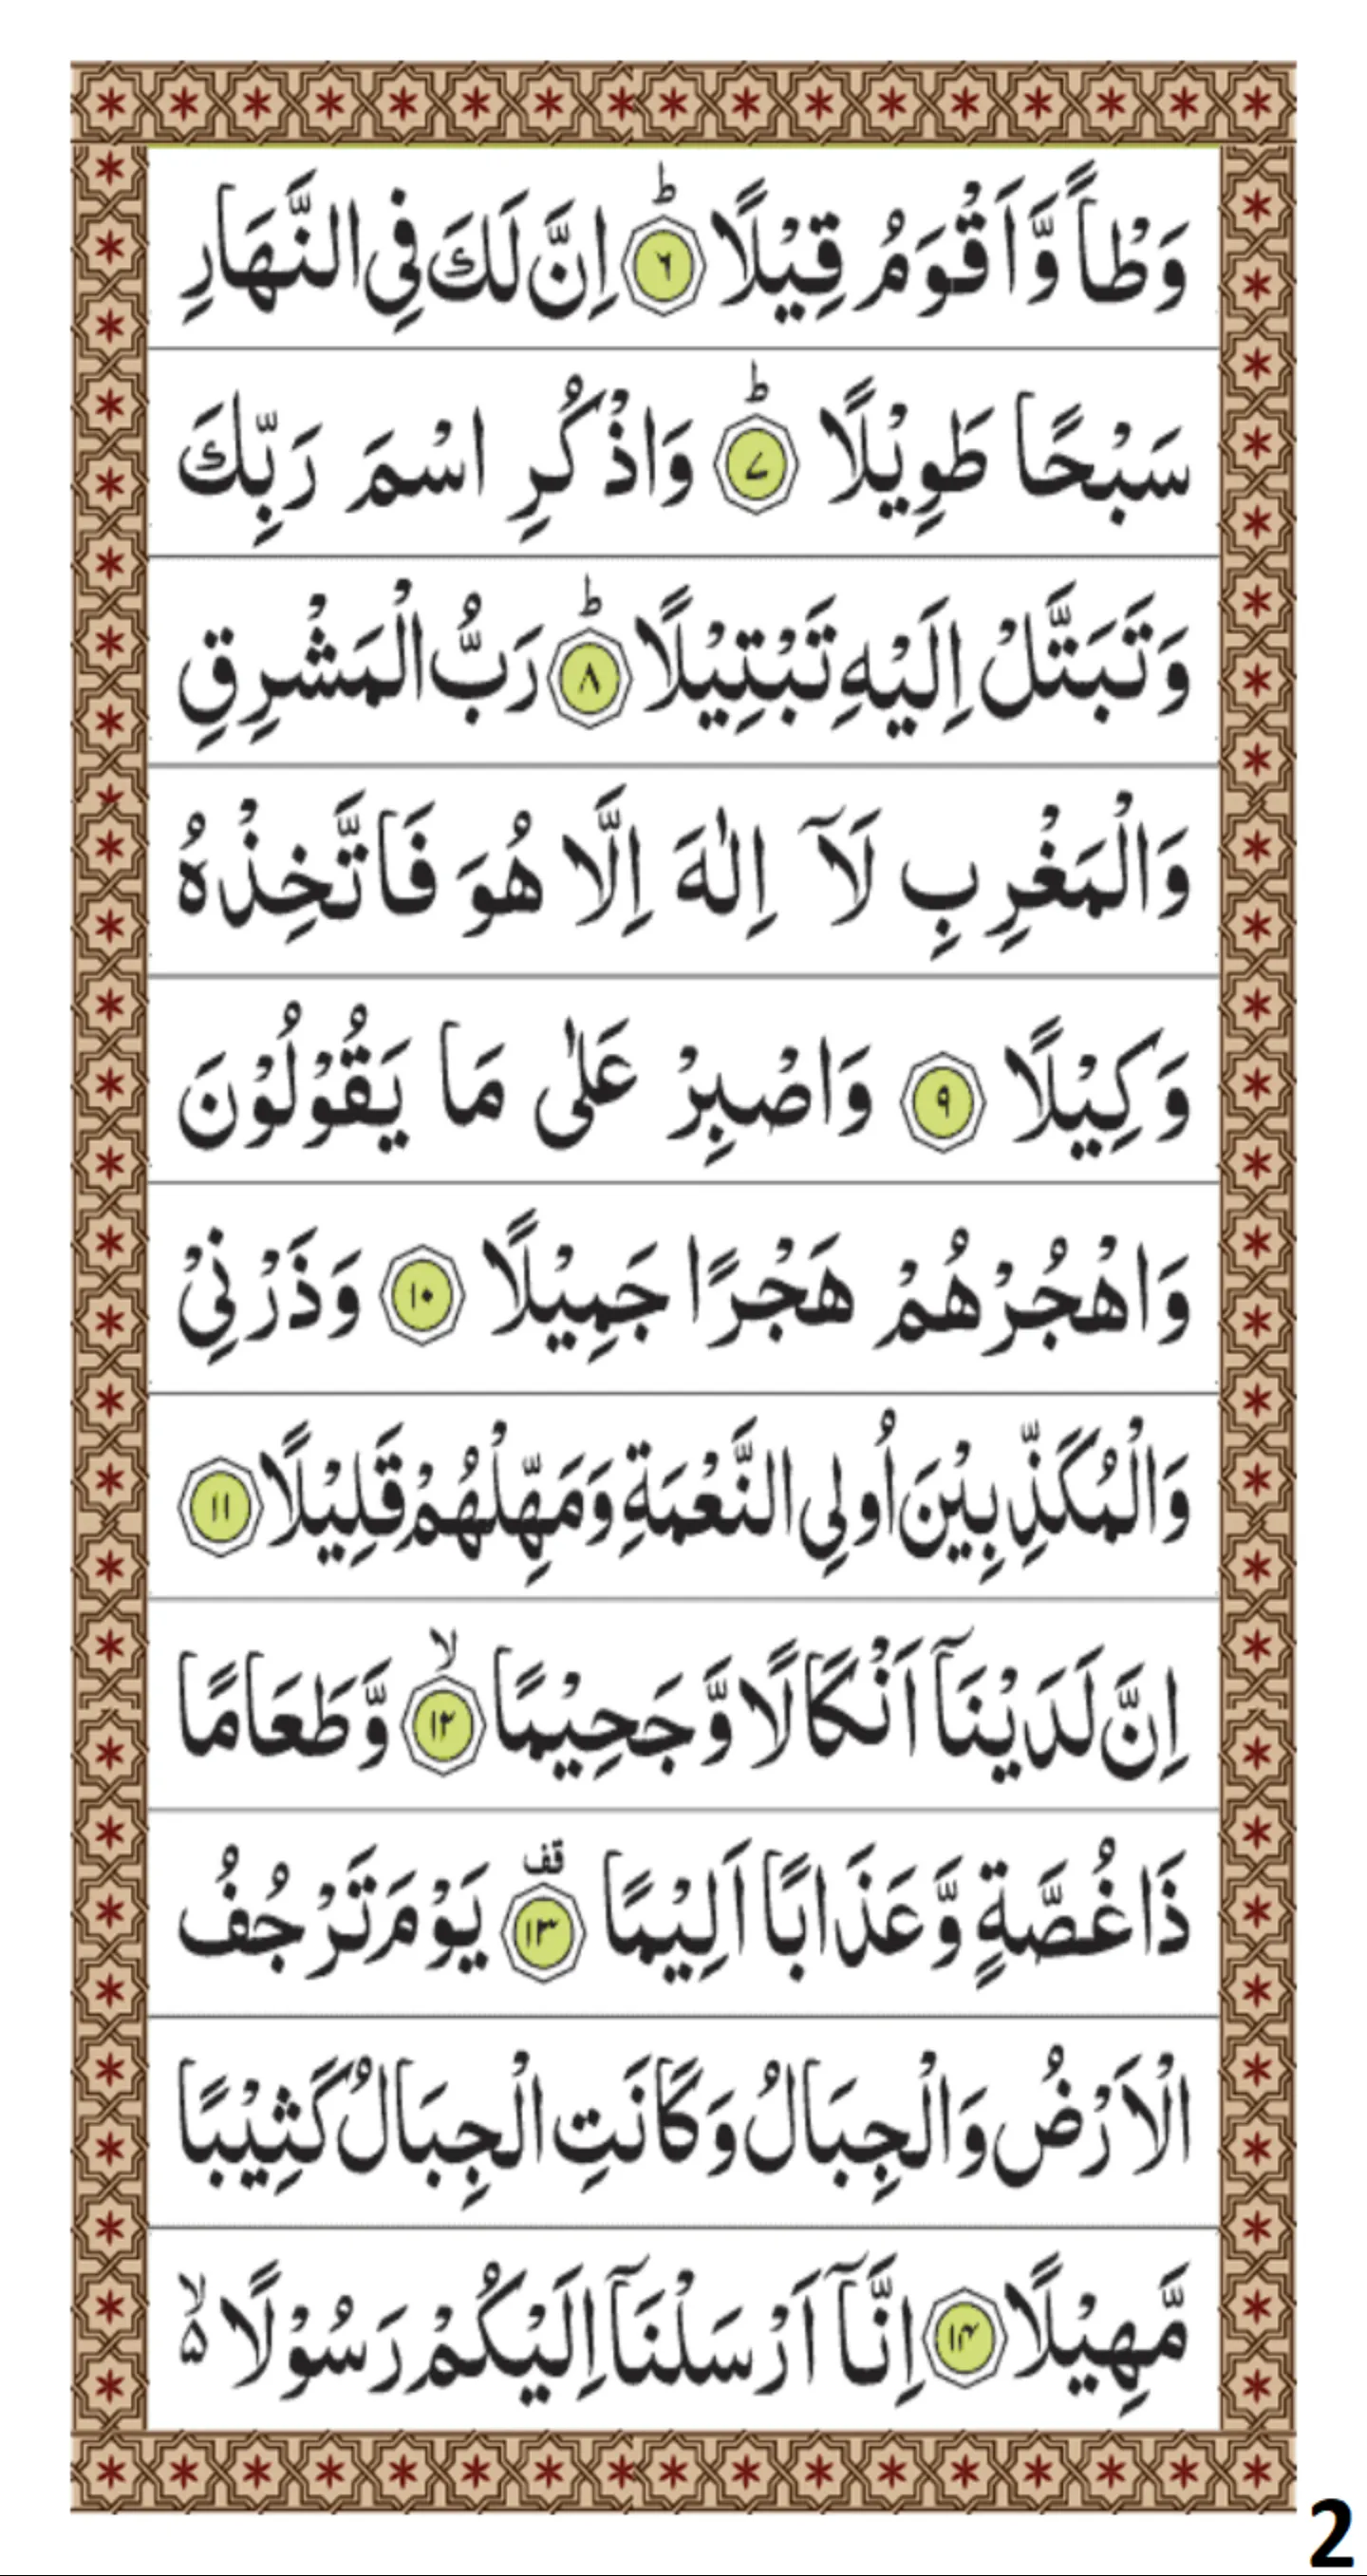 وَطْاً وَّاَقْوَمُ قِيْلًا ؕ ٦ اِنَّ لَكَ فِى النَّهَارِ
سَبْحًا طَوِيْلًا ؕ ۷ وَاذْكُرِ اسْمَ رَبِّكَ
وَتَبَتَّلْ اِلَيْهِ تَبْتِيْلًا ؕ ۸ رَبُّ الْمَشْرِقِ
وَالْمَغْرِبِ لَاۤ اِلٰهَ اِلَّا هُوَ فَاتَّخِذْهُ
وَكِيْلًا ۹ وَاصْبِرْ عَلٰى مَا يَقُوْلُوْنَ
وَاهْجُرْهُمْ هَجْرًا جَمِيْلًا ۱۰ وَذَرْنِىْ
وَالْمُكَذِّبِيْنَ اُولِى النَّعْمَةِ وَمَهِّلْهُمْ قَلِيْلًا ۱۱
اِنَّ لَدَيْنَاۤ اَنْكَالًا وَّجَحِيْمًا ۙ ۱۲ وَّطَعَامًا
ذَا غُصَّةٍ وَّعَذَابًا اَلِيْمًا قف ۱۳ يَوْمَ تَرْجُفُ
الْاَرْضُ وَالْجِبَالُ وَكَانَتِ الْجِبَالُ كَثِيْبًا
مَّهِيْلًا ۱۴ اِنَّاۤ اَرْسَلْنَاۤ اِلَيْكُمْ رَسُوْلًا ۙ ۵
2